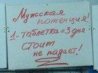 Мужская
потенция!
1-таблетка=3 дня
стоит
не падает!